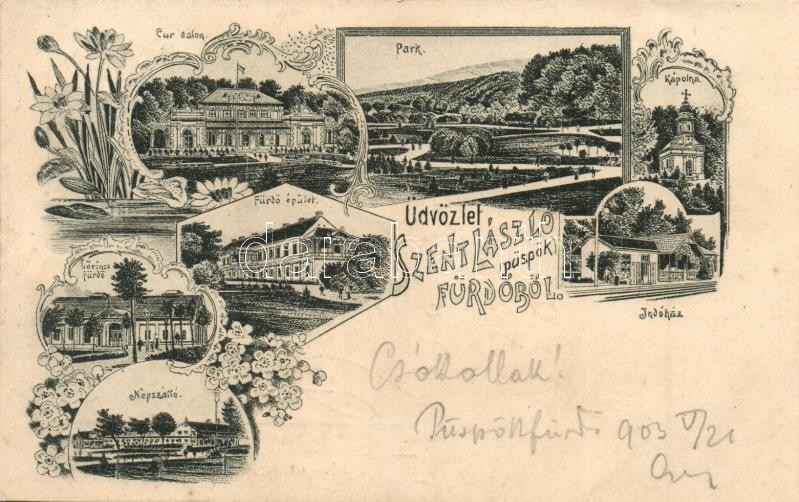 Cur salon.
Park.
Kápolna
Fürdő épület.
Üdvözlet
SZENT LÁSZLÓ
püspök
FÜRDŐBŐL.
Lőrincz
fürdő
Indóház
Népszálló.
Csókollak!
Püspökfürdő 903 V/21